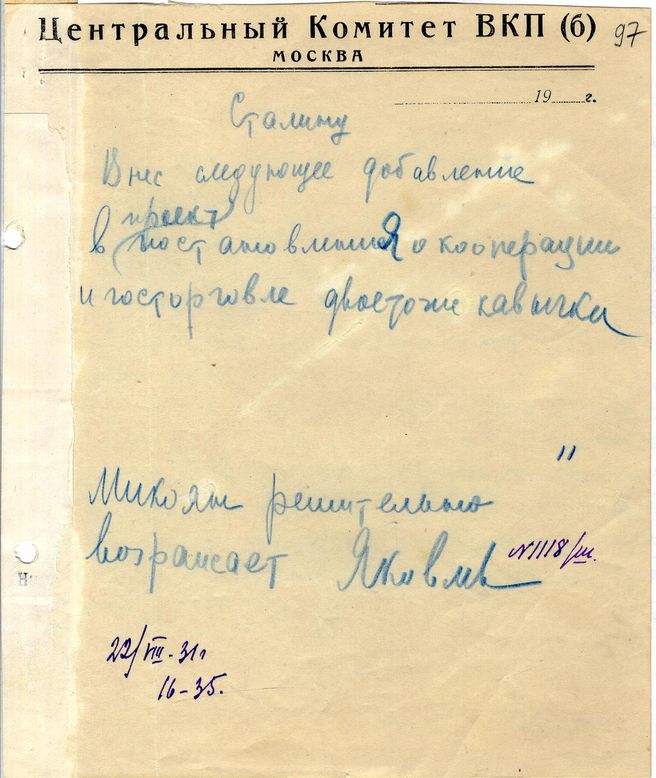 Центральный Комитет ВКП (б)
97
МОСКВА
19 г.
Сталину
Внес следующее добавление
проект
в постановления о кооперации
и госторговле двоеточие кавычки
"
Микоян решительно
возражает Яковлев
N1118/ш.
22/VIII-31г
16-35.
Н